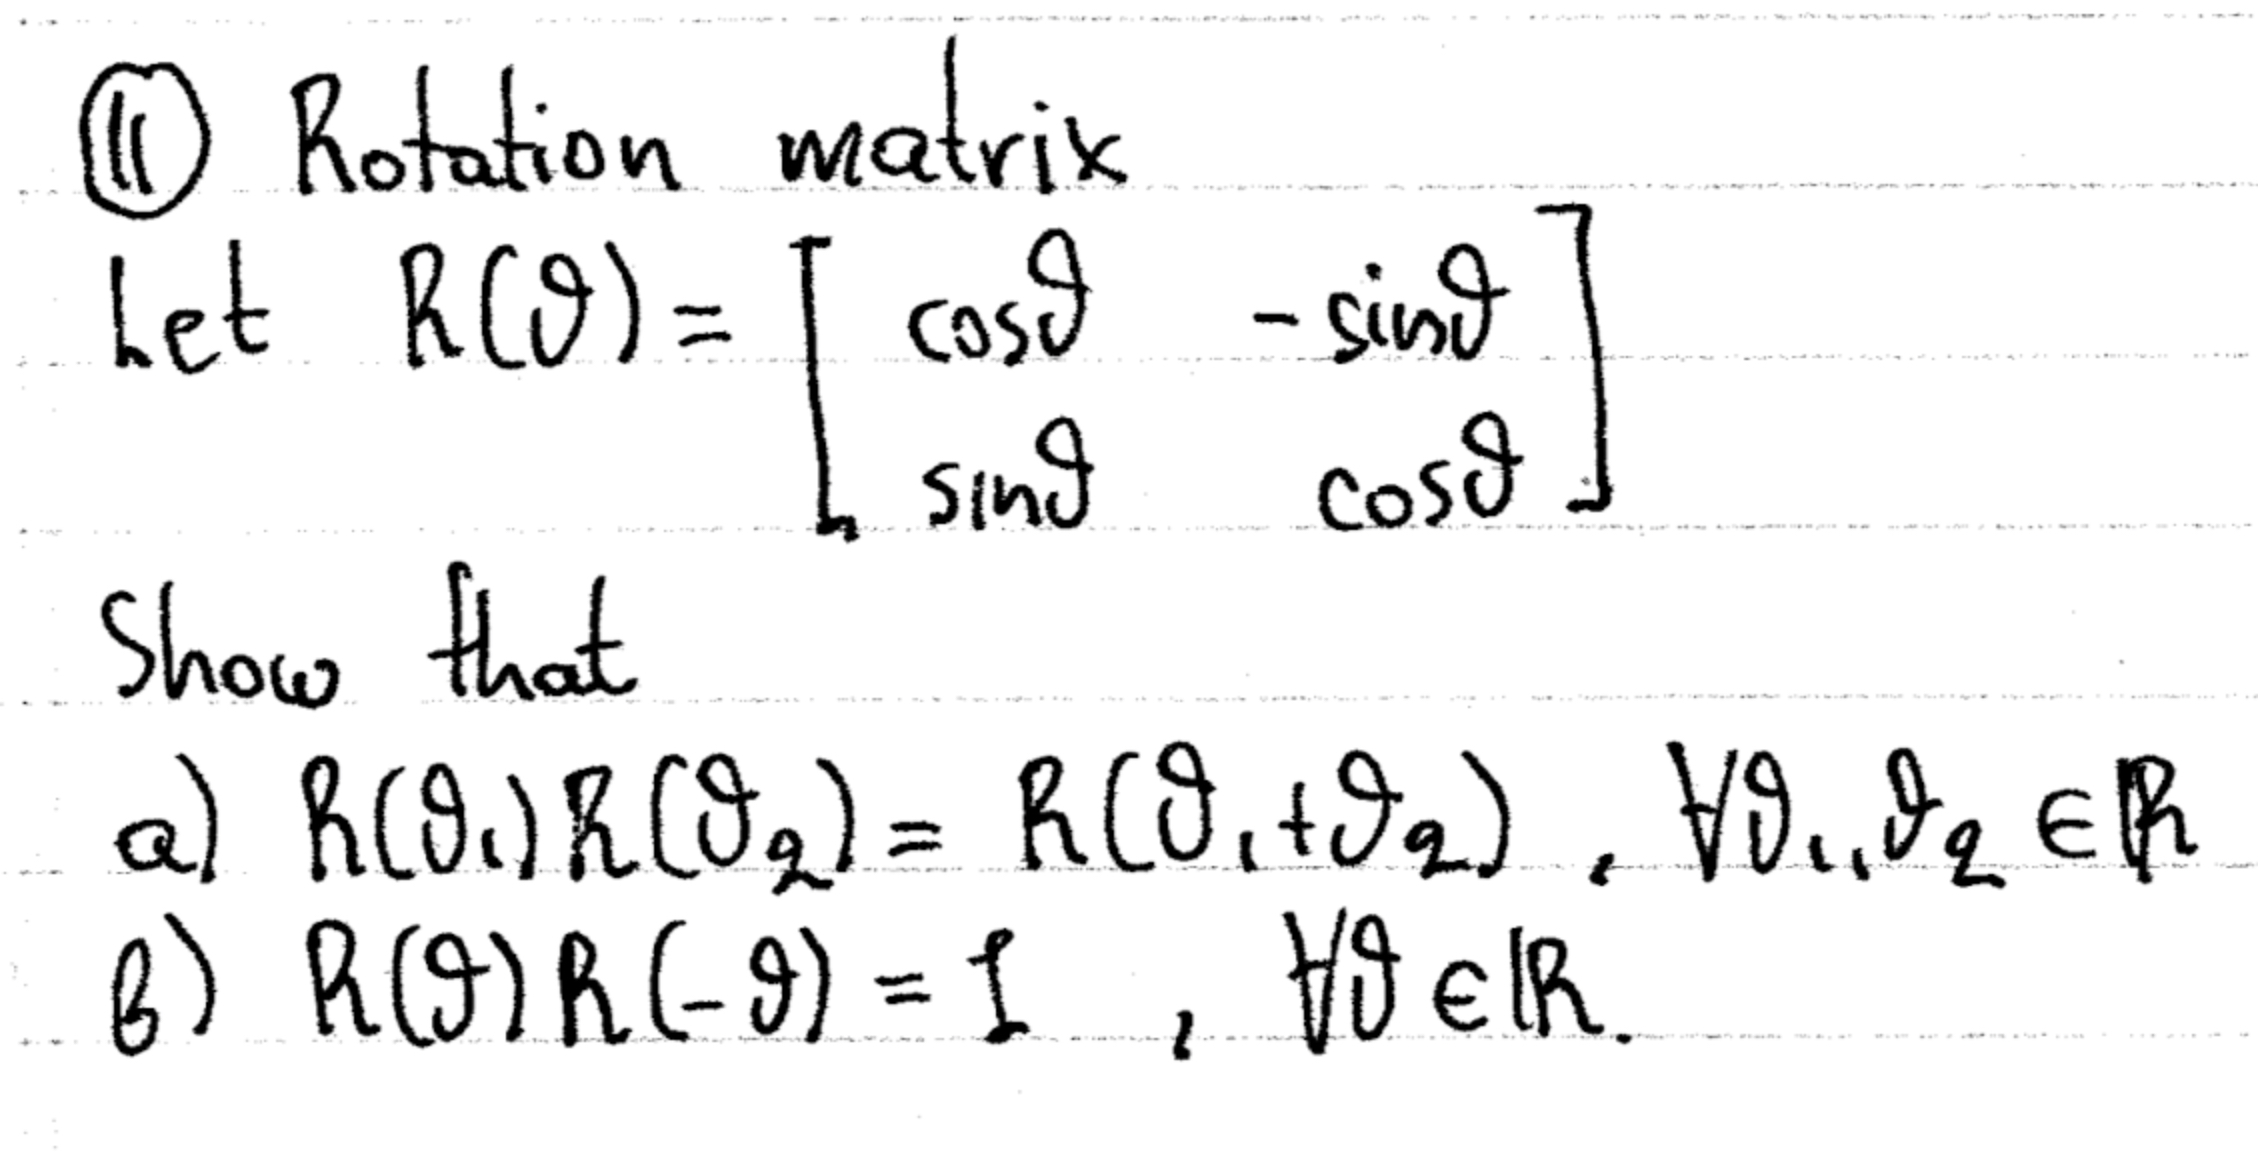 ⑪ Rotation matrix
Let R(ϑ) = [ cosϑ -sinϑ
sinϑ cosϑ ]
Show that
a) R(ϑ₁)R(ϑ₂) = R(ϑ₁+ϑ₂) , ∀ϑ₁,ϑ₂ ∈ ℝ
b) R(ϑ)R(-ϑ) = I , ∀ϑ ∈ ℝ.